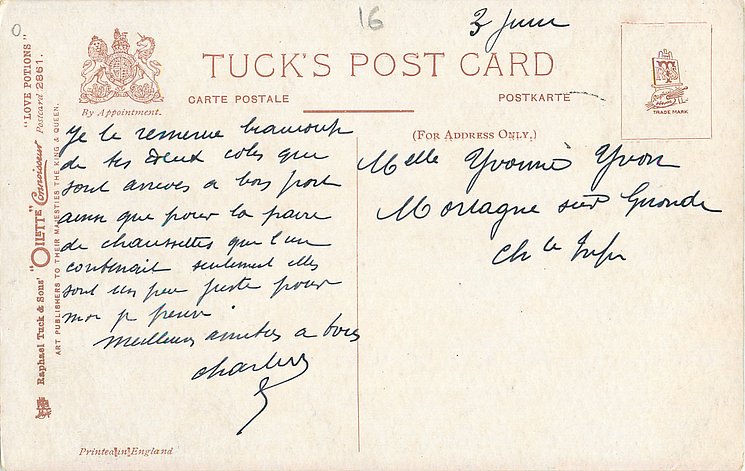 16
3 Juin
TUCK'S POST CARD
CARTE POSTALE
POSTKARTE
By Appointment.
(FOR ADDRESS ONLY.)
TRADE MARK
Je te remercie beaucoup
de tes deux colis que
sont arrives a bon port
ainsi que pour la paire
de chaussettes que l'un
contenait seulement elles
sont un peu juste pour
moi
Meilleurs amities a tous
Charles
Melle Yvonne Yvon
Mortagne sur Gironde
Ch te Infr
"LOVE POTIONS"
Postcard 2861.
Raphael Tuck & Sons' "OILETTE" Connoisseur
ART PUBLISHERS TO THEIR MAJESTIES THE KING & QUEEN.
Printed in England